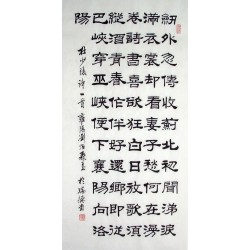 劒外忽傳收薊北初聞涕淚
滿衣裳却看妻子愁何在漫
卷詩書喜欲狂白日放歌須
縱酒青春作伴好還鄉即從
巴峽穿巫峽便下襄陽向洛
陽
杜少陵詩一首